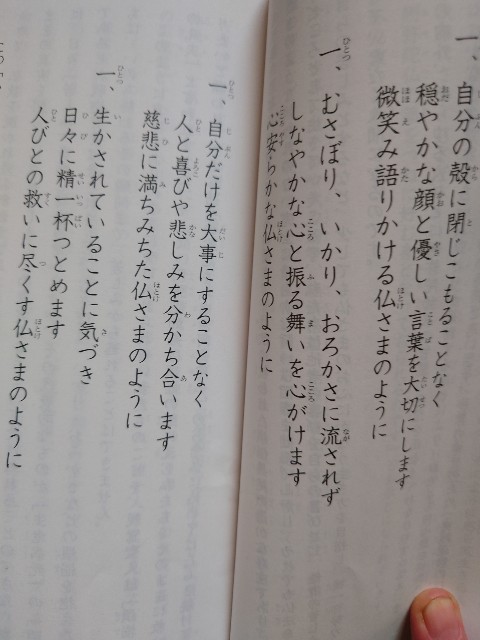 一、自分の殻に閉じこもることなく
穏やかな顔と優しい言葉を大切にします
微笑み語りかける仏さまのように
一、むさぼり、いかり、おろかさに流されず
しなやかな心と振る舞いを心がけます
心安らかな仏さまのように
一、自分だけを大事にすることなく
人と喜びや悲しみを分かち合います
慈悲に満ちみちた仏さまのように
一、生かされていることに気づき
日々に精一杯つとめます
人びとの救いに尽くす仏さまのように